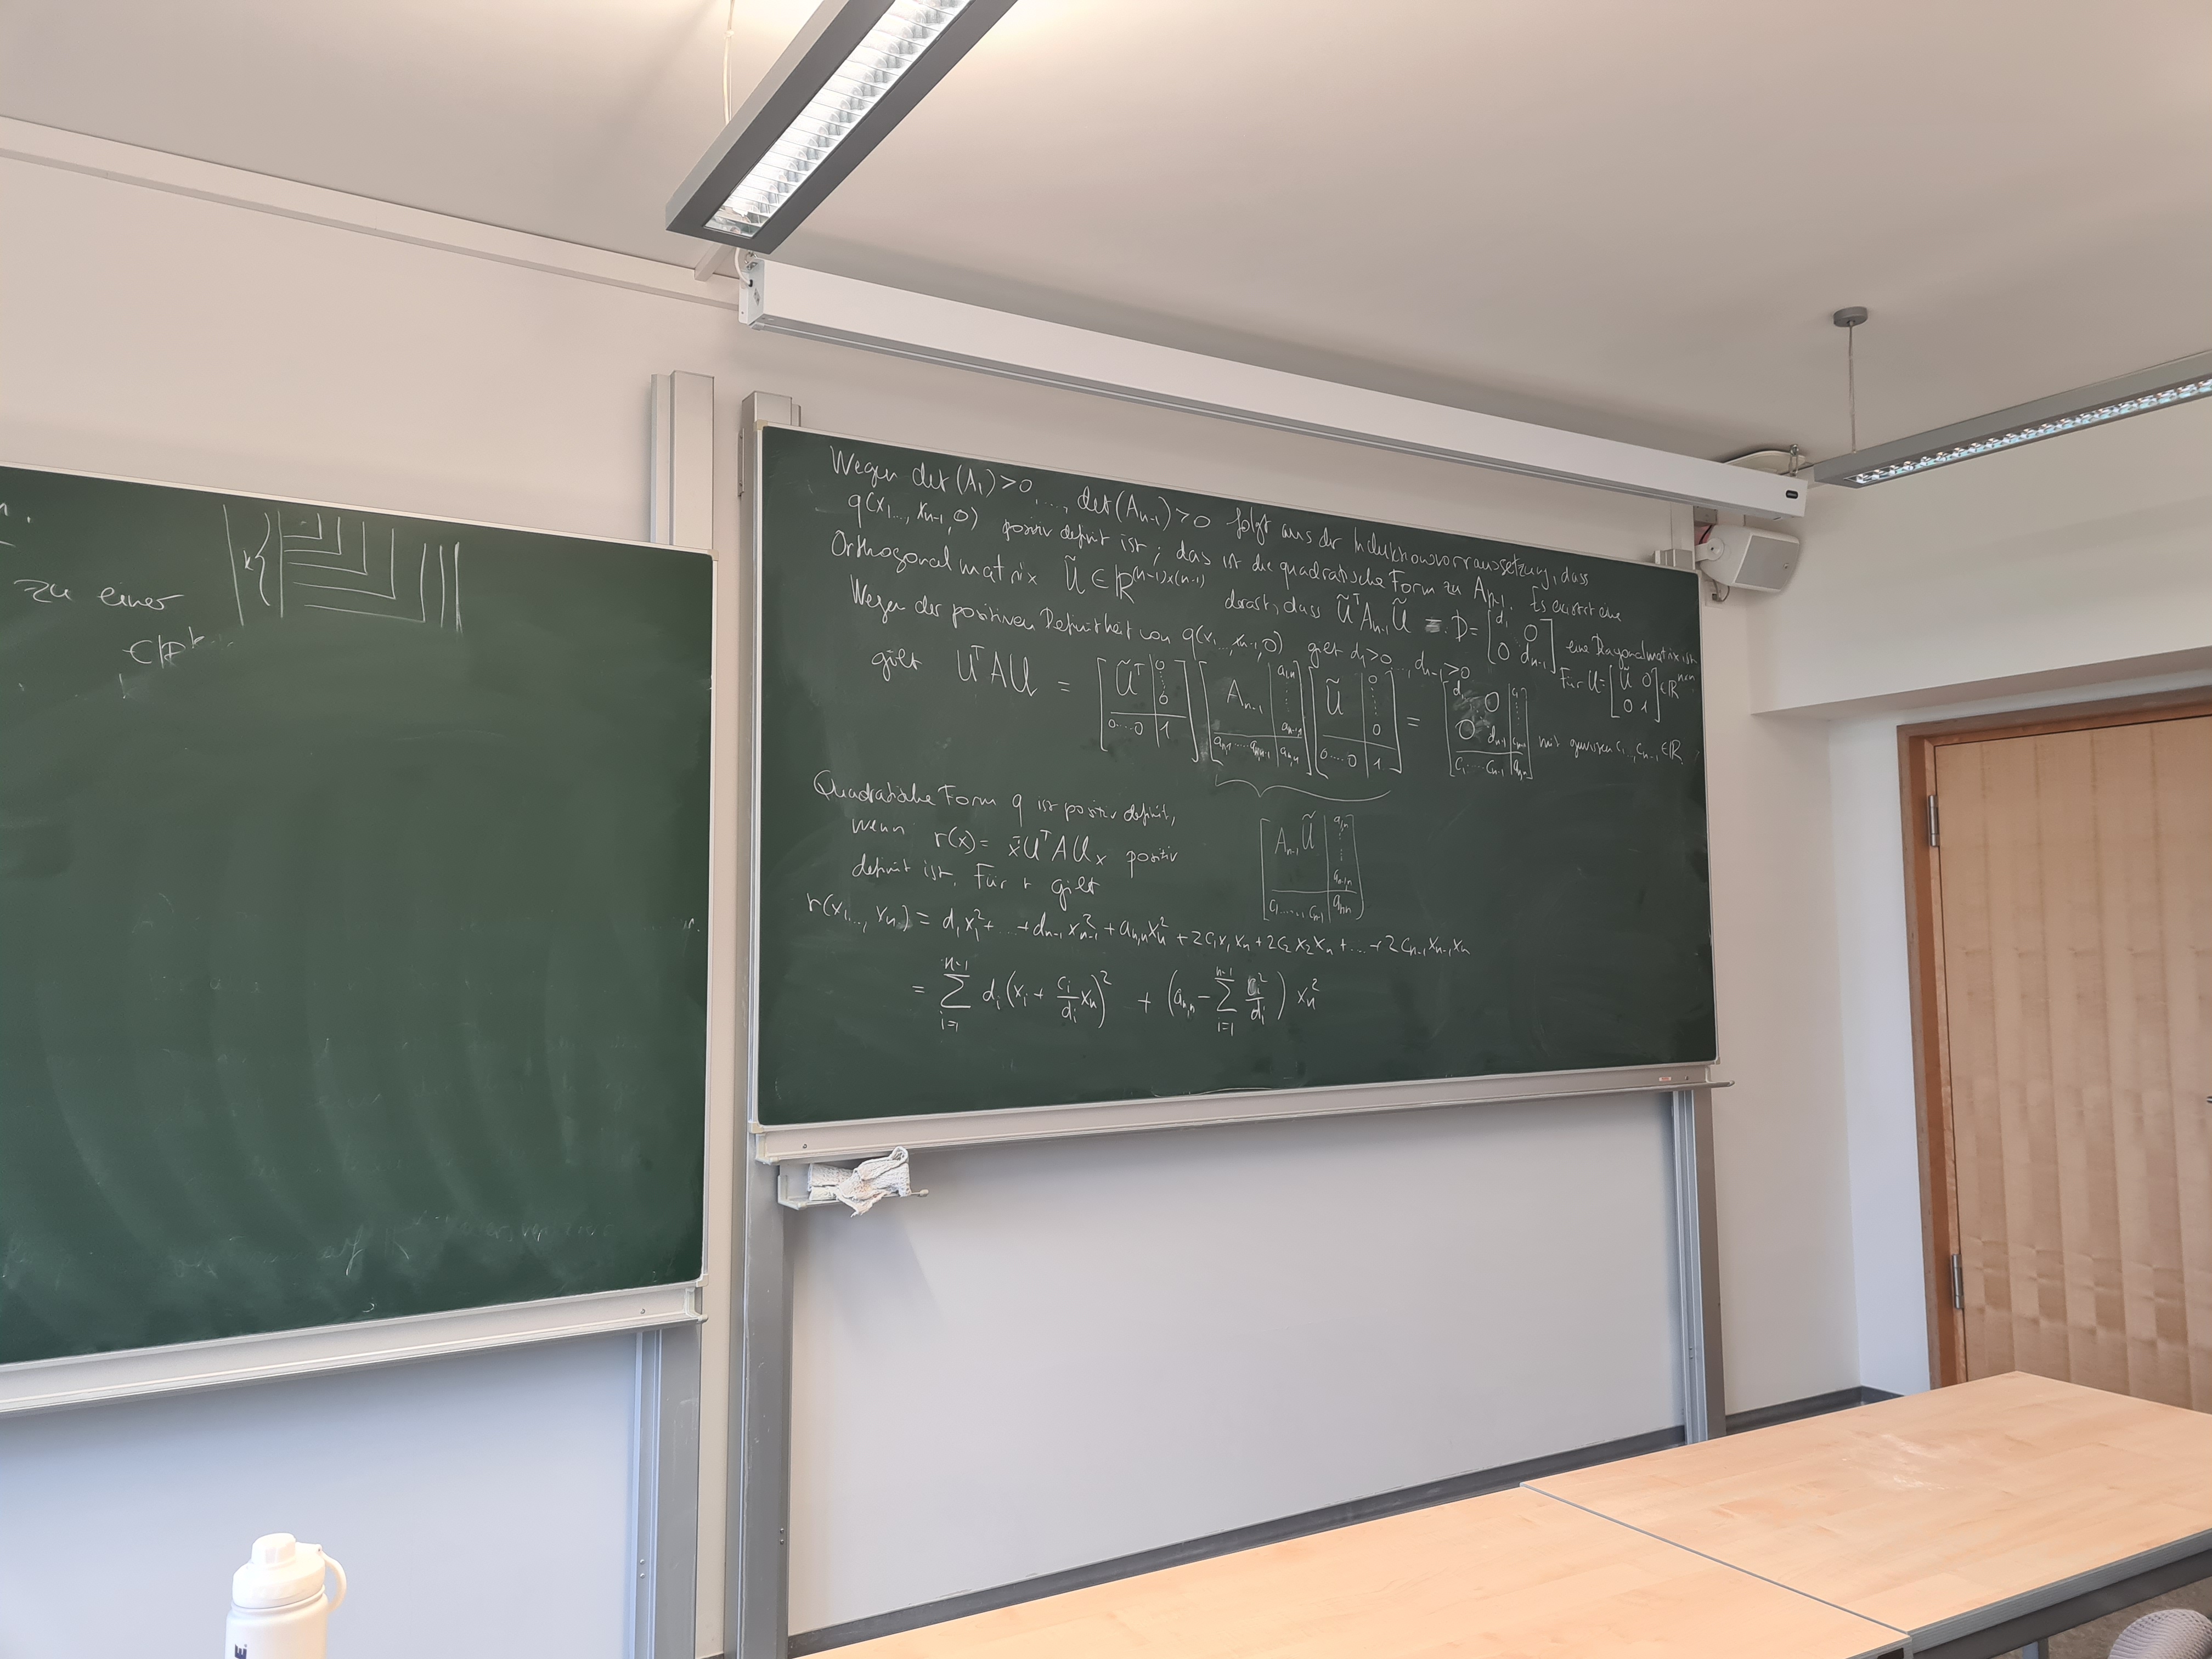 zu einer
k
Wegen det(A₁)>0, ..., det(Aₙ₋₁)>0 folgt aus der Induktionsvorraussetzung, dass
q(x₁, ..., xₙ₋₁, 0) positiv definit ist; das ist die quadratische Form zu Aₙ₋₁. Es existiert eine
Orthogonalmatrix Ũ ∈ ℝ⁽ⁿ⁻¹⁾ˣ⁽ⁿ⁻¹⁾ derart, dass ŨᵀAₙ₋₁Ũ =: D = [d₁ 0 / 0 dₙ₋₁] eine Diagonalmatrix ist
Wegen der positiven Definitheit von q(x₁, ..., xₙ₋₁, 0) gilt d₁>0, ..., dₙ₋₁>0 Für U = [Ũ 0 / 0 1] ∈ ℝⁿˣⁿ
gilt UᵀAU = [Ũᵀ | 0 ⋮ 0 / 0 ... 0 | 1] [Aₙ₋₁ | a₁,ₙ ⋮ aₙ₋₁,ₙ / aₙ,₁ ... aₙ,ₙ₋₁ | aₙ,ₙ] [Ũ | 0 ⋮ 0 / 0 ... 0 | 1] = [d₁ 0 0 dₙ₋₁ | c₁ ⋮ cₙ₋₁ / c₁ ... cₙ₋₁ | aₙ,ₙ] mit gewissen c₁, cₙ₋₁ ∈ ℝ
[Aₙ₋₁Ũ | a₁,ₙ ⋮ aₙ₋₁,ₙ / c₁, ..., cₙ₋₁ | aₙₙ]
Quadratische Form q ist positiv definit,
wenn r(x) = xᵀUᵀAUx positiv
definit ist. Für r gilt
r(x₁, ..., xₙ) = d₁x₁² + ... + dₙ₋₁xₙ₋₁² + aₙ,ₙxₙ² + 2c₁x₁xₙ + 2c₂x₂xₙ + ... + 2cₙ₋₁xₙ₋₁xₙ
= ∑ᵢ₌₁ⁿ⁻¹ dᵢ(xᵢ + cᵢ/dᵢ xₙ)² + (aₙ,ₙ − ∑ᵢ₌₁ⁿ⁻¹ cᵢ²/dᵢ) xₙ²